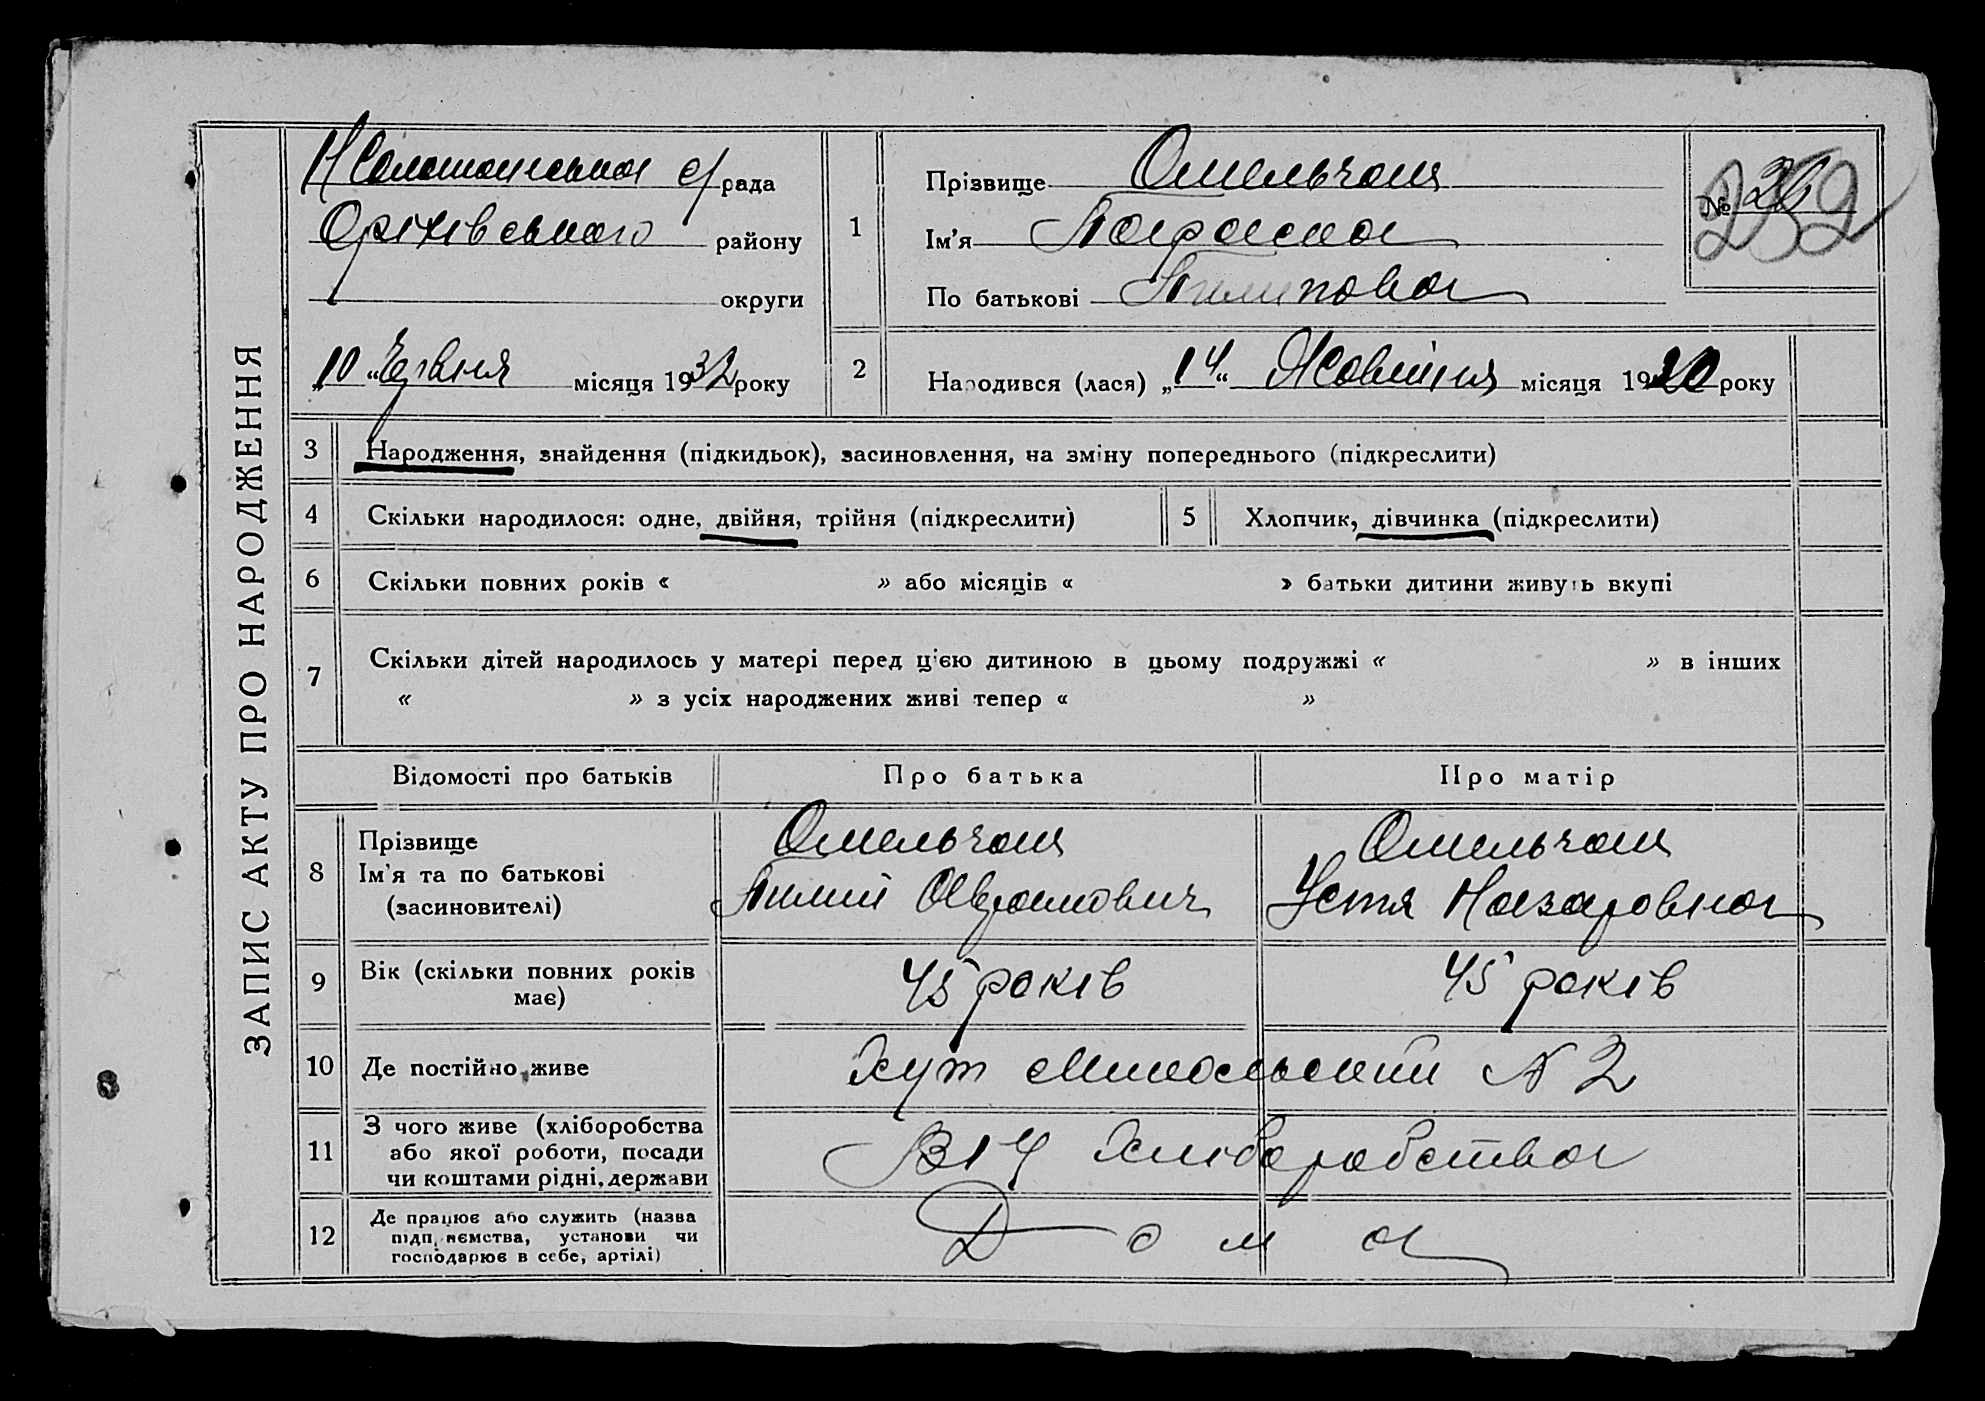 ЗАПИС АКТУ ПРО НАРОДЖЕННЯ
рада
Оріхівського району
округи
„10“ Червня місяця 1932 року
1
Прізвище Омельчак
Ім'я Параска
По батькові Пилипова
№
232
2
Народився (лася) „14“ Жовтня місяця 1920 року
3 Народження, знайдення (підкидьок), засиновлення, на зміну попереднього (підкреслити)
4 Скільки народилося: одне, двійня, трійня (підкреслити)
5 Хлопчик, дівчинка (підкреслити)
6 Скільки повних років « » або місяців « » батьки дитини живуть вкупі
7 Скільки дітей народилось у матері перед цією дитиною в цьому подружжі « » в інших
« » з усіх народжених живі тепер « »
Відомості про батьків Про батька Про матір
8 Прізвище
Ім'я та по батькові
(засиновителі)
Омельчак
Пилип Аврамович
Омельчак
Устя Назаровна
9 Вік (скільки повних років
має)
45 років
45 років
10 Де постійно живе
Хут Микольский № 2
11 З чого живе (хліборобства
або якої роботи, посади
чи коштами рідні, держави
Хліборобства
12 Де працює або служить (назва
підприємства, установи чи
господарює в себе, артілі)
Дома